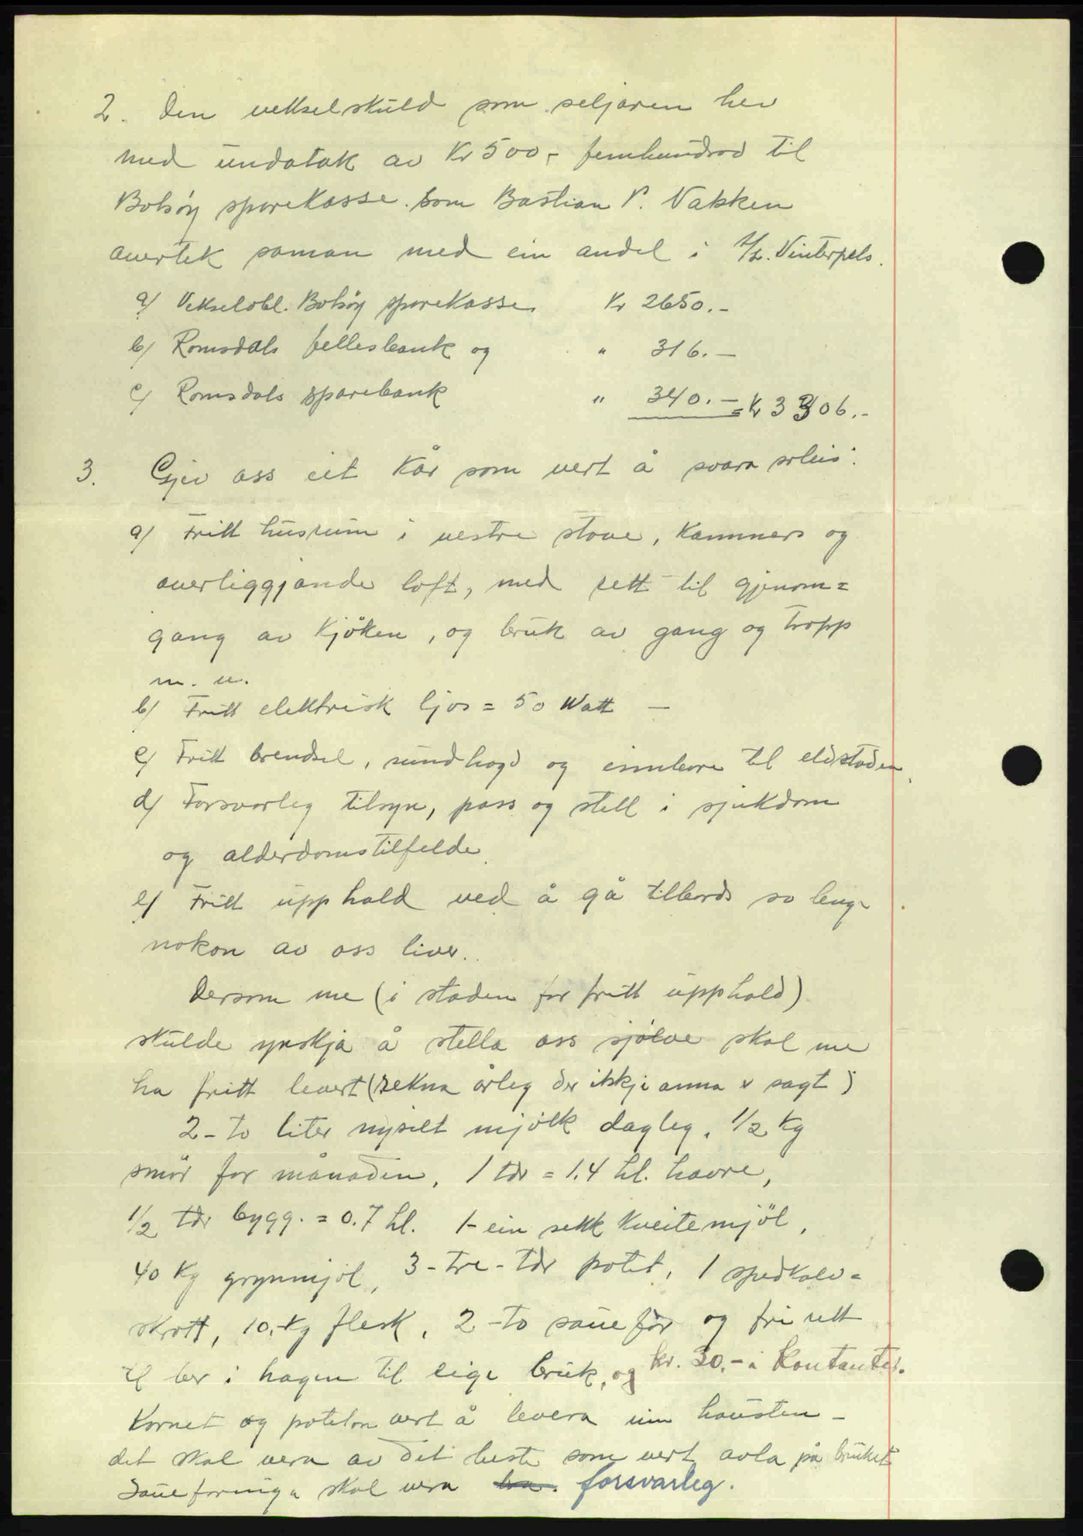 2. Den vekselskuld som seljaren hev
med undatak av Kr 500,- femhundrad til
Bolsøy sparekasse som Bastian P. Vakken
overtek saman med ein andel i A/L. Vinterpels.
a/ Vekselobl. Bolsøy sparekasse Kr 2650.-
b/ Romsdals fellesbank og " 316.-
c/ Romsdals sparebank " 340.- = Kr 3306.-
3. Gjev oss eit Kår som vert å svara soleis:
a/ Fritt husrum i vestre stove, Kammers og
overliggjande loft, med rett til gjenom=
gang av Kjøken, og bruk av gang og tropp
m. v.
b/ Fritt elektrisk ljos = 50 Watt -
c/ Fritt brendsel, sundhogd og innbore til eldstaden.
d/ Forsvarleg tilsyn, pass og stell i sjukdom
og alderdomstilfelde.
e/ Fritt upphald ved å gå tilbords so lenge
nokon av oss liver.
Dersom me (i staden for fritt upphald)
skulde ynskja å stella oss sjølve skal me
ha fritt levert (rekna årleg der ikkje anna er sagt)
2-to liter nysilt mjölk dagleg, 1/2 Kg
smör for månaden, 1 tdr = 1.4 hl. havre,
1/2 tdr bygg. = 0.7 hl. 1-ein sekk Kveitemjöl,
40 Kg grynmjöl, 3-tre-tdr potet, 1 spedkalv=
skrott, 10.-Kg flesk, 2-to sauefòr og fri rett
til ber i hagen til eige bruk, og kr. 30.- i Kontanter.
Kornet og poteton vert å levera um hausten -
det skal vera av det beste som vert avla på bruket
Saueforinga skal vera forsvarleg.